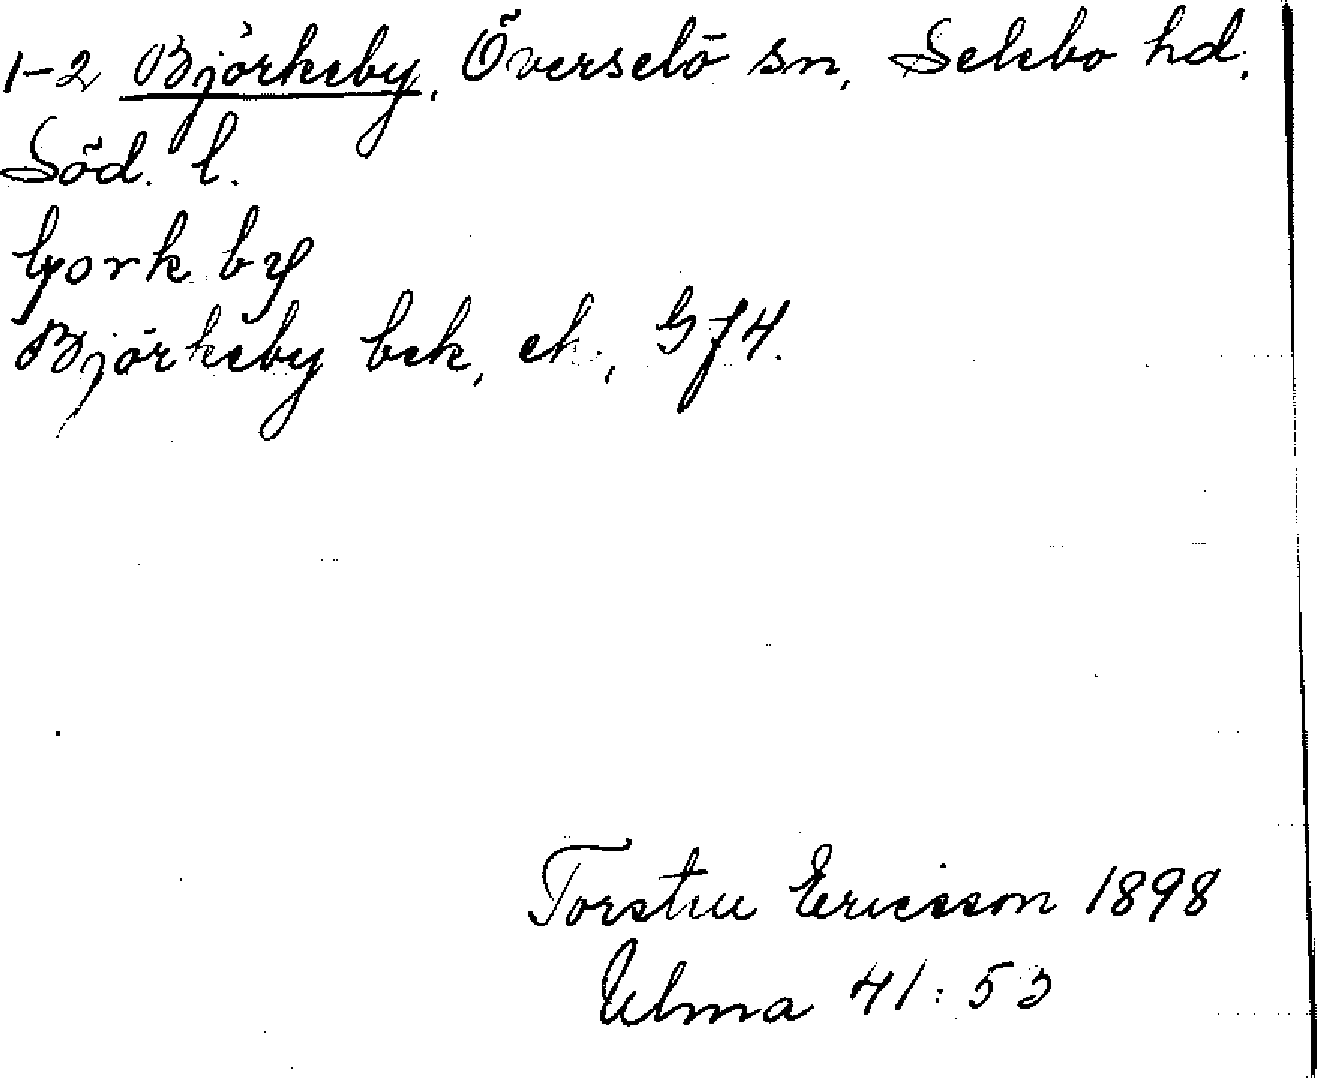 1-2 Björkeby, Överselö sn, Selebo hd,
Söd. l.
Björkeby bek, ek., Gf4.
Torsten Ericsson 1898
Ulma 41:53